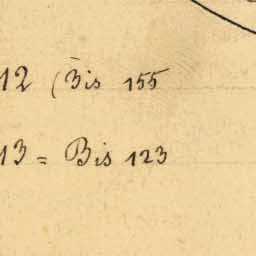 12 (Bis 155
13 = Bis 123